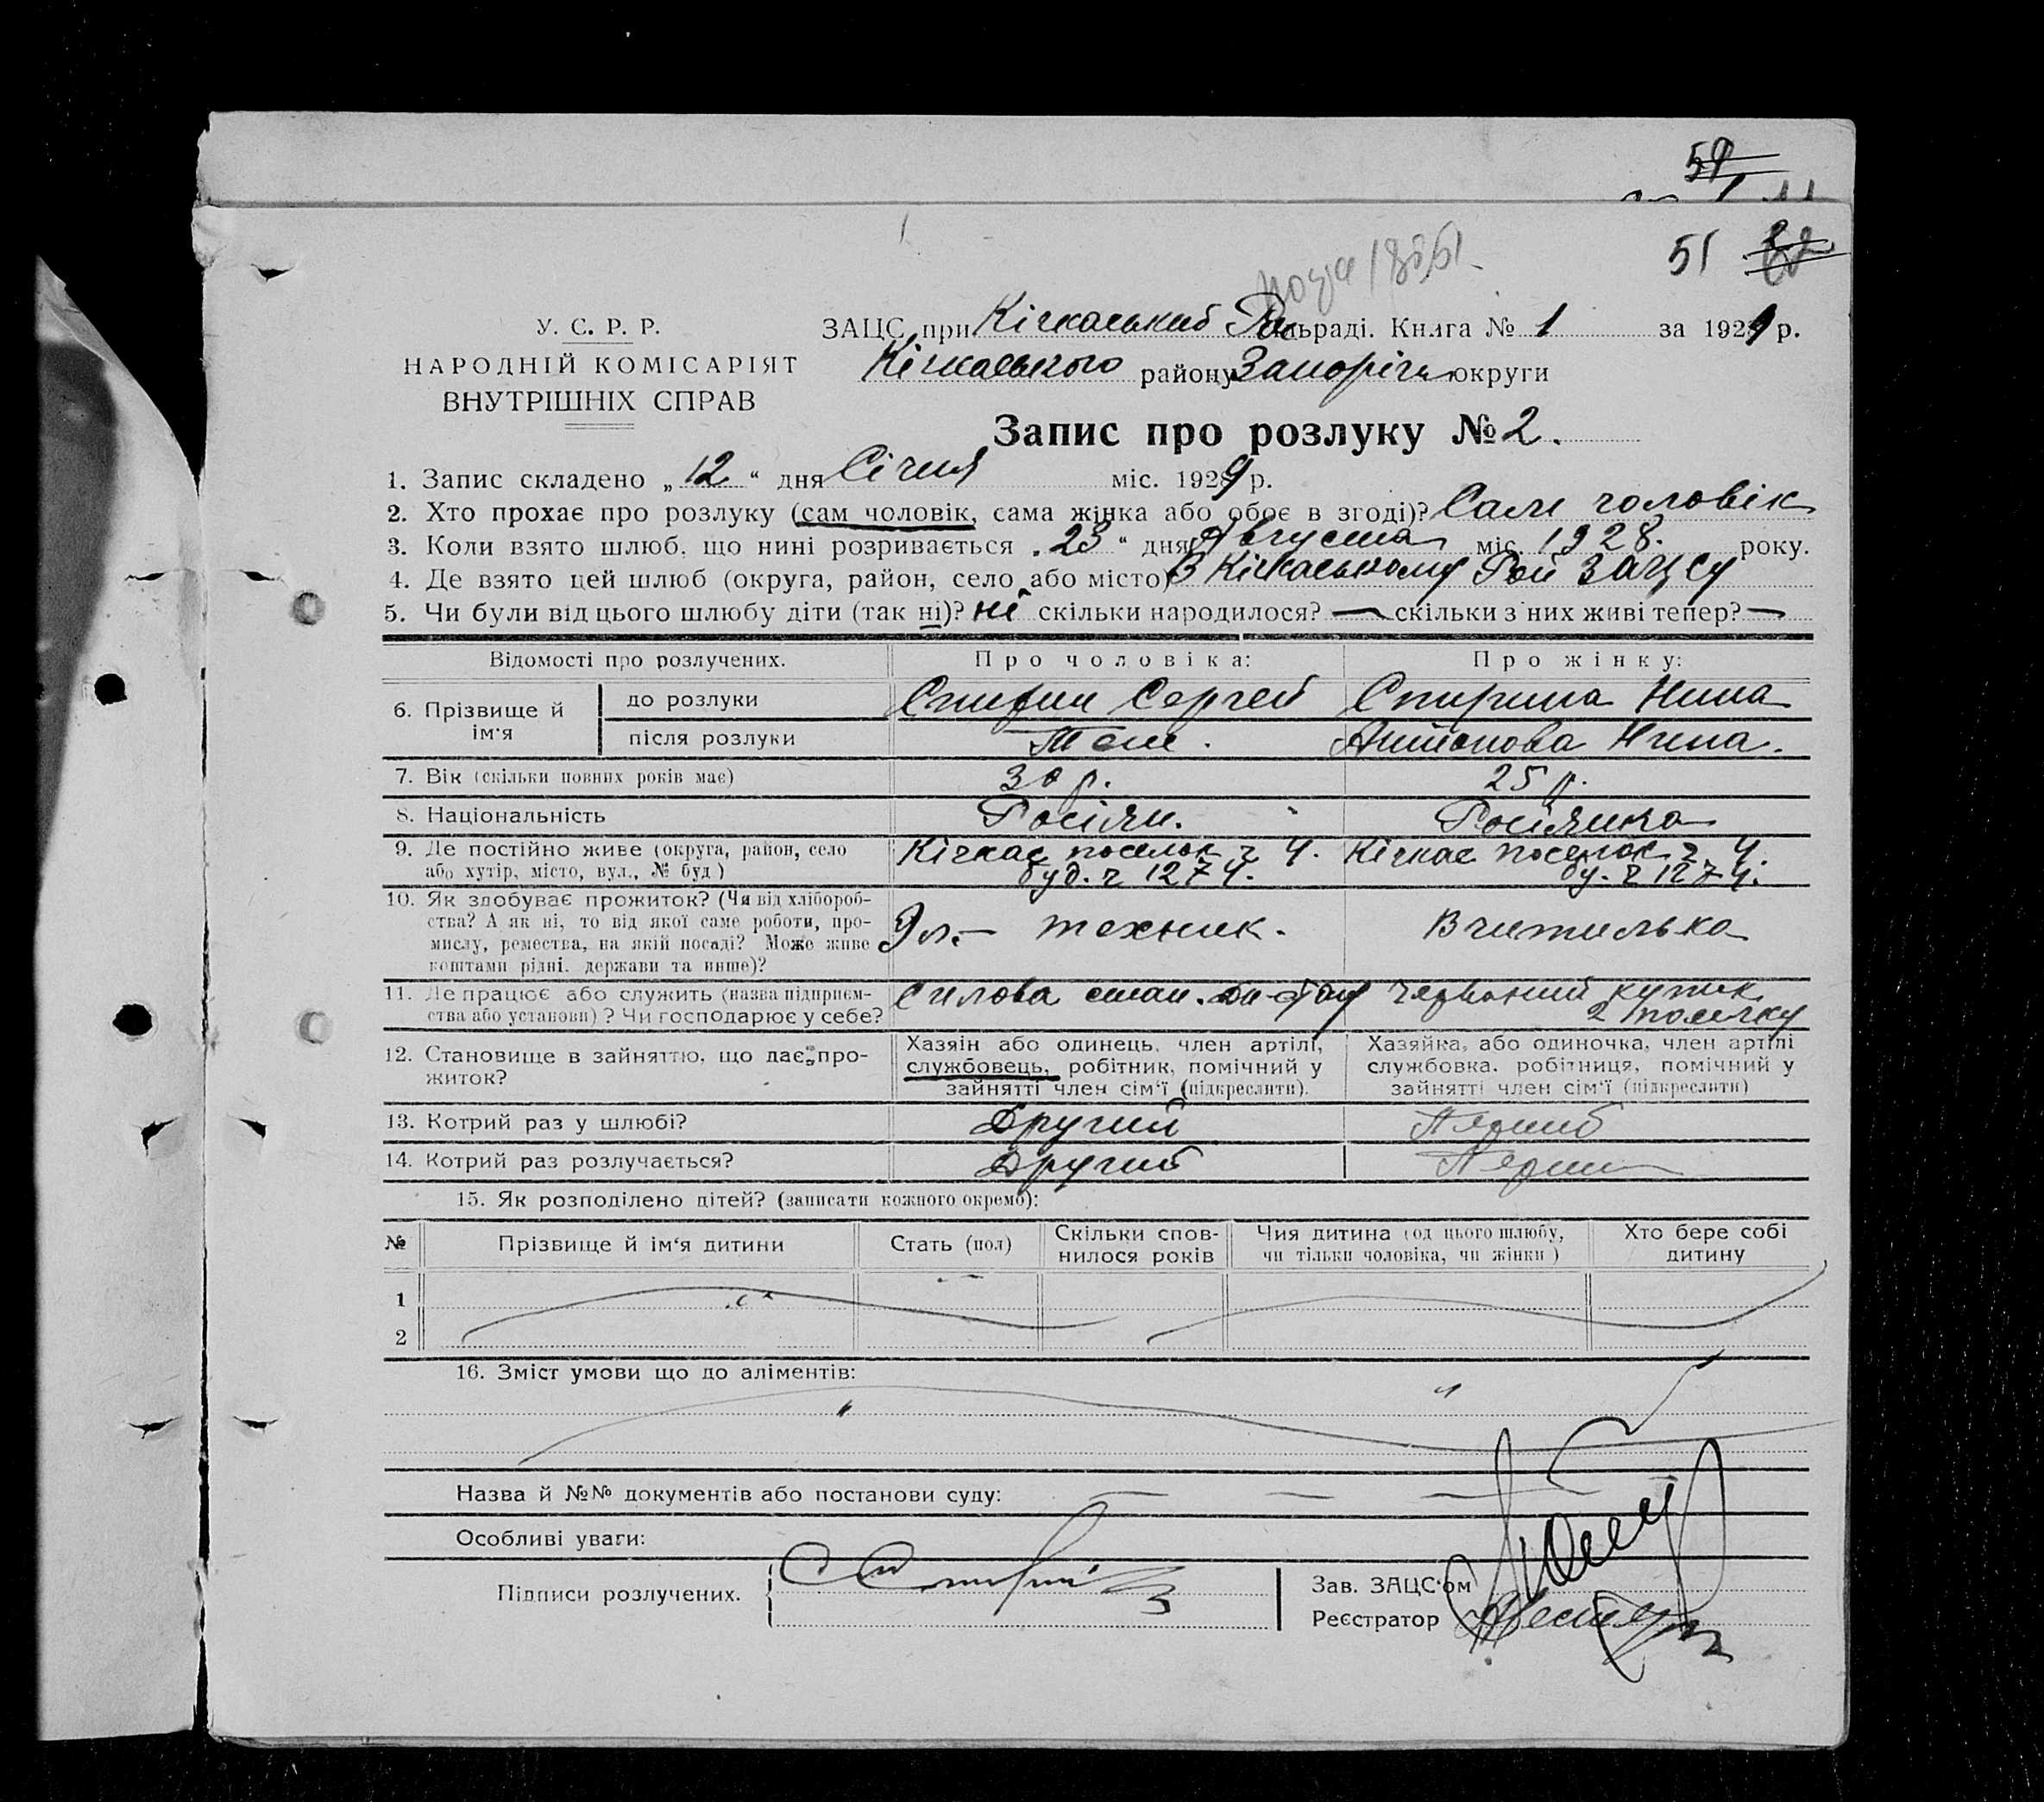 59
51
У. С. Р. Р.
НАРОДНІЙ КОМІСАРІЯТ
ВНУТРІШНІХ СПРАВ
ЗАЦС при Кічкаський Ра сільраді. Книга № 1 за 1929 р.
Кічкаського району Запоріж округи
Запис про розлуку № 2.
1. Запис складено „12“ дня Січня міс. 1929 р.
2. Хто прохає про розлуку (сам чоловік, сама жінка або обоє в згоді)? Сам чоловік
3. Коли взято шлюб, що нині розривається „23“ дня Августа міс. 1928. року.
4. Де взято цей шлюб (округа, район, село або місто) В Кічкаському Рай ЗАЦСу
5. Чи були від цього шлюбу діти (так ні)? ні скільки народилося? — скільки з них живі тепер? —
Відомості про розлучених. Про чоловіка: Про жінку:
6. Прізвище й ім'я до розлуки Спирин Сергей Спирина Нина
після розлуки Теж. Антонова Нина.
7. Вік (скільки повних років має) 30 р. 25 р.
8. Національність Росіян. Росіянка
9. Де постійно живе (округа, район, село Кічкас поселок ч 4. Кічкас поселок ч 4.
або хутір, місто, вул., № буд) буд. ч 1274. бу. ч 1274.
10. Як здобуває прожиток? (Чи від хлібороб-
ства? А як ні, то від якої саме роботи, про-
мислу, ремества, на якій посаді? Може живе
коштами рідні, держави та инше)? Эл.- техник. Вчителька
11. Де працює або служить (назва підприєм- Силова стан. Червоний кутик
ства або установи)? Чи господарює у себе? 2
12. Становище в зайняттю, що дає про-
житок?
Хазяін або одинець, член артілі,
службовець, робітник, помічний у
зайнятті член сім'ї (підкреслити).
Хазяйка, або одиночка, член артілі
службовка, робітниця, помічний у
зайнятті член сім'ї (підкреслити)
13. Котрий раз у шлюбі? Другий Перший
14. Котрий раз розлучається? Другий Перши
15. Як розподілено дітей? (записати кожного окремо):
№ Прізвище й ім'я дитини Стать (пол) Скільки спов-нилося років Чия дитина (од цього шлюбу, чи тільки чоловіка, чи жінки) Хто бере собі дитину
1
2
16. Зміст умови що до аліментів:
Назва й №№ документів або постанови суду: — — —
Особливі уваги:
Підписи розлучених.
Зав. ЗАЦС'ом
Реєстратор